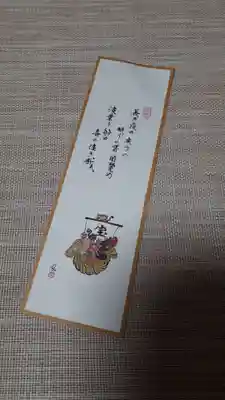 長き夜の遠の
眠りの皆目覚め
波乗り船の
音の良き哉
宝